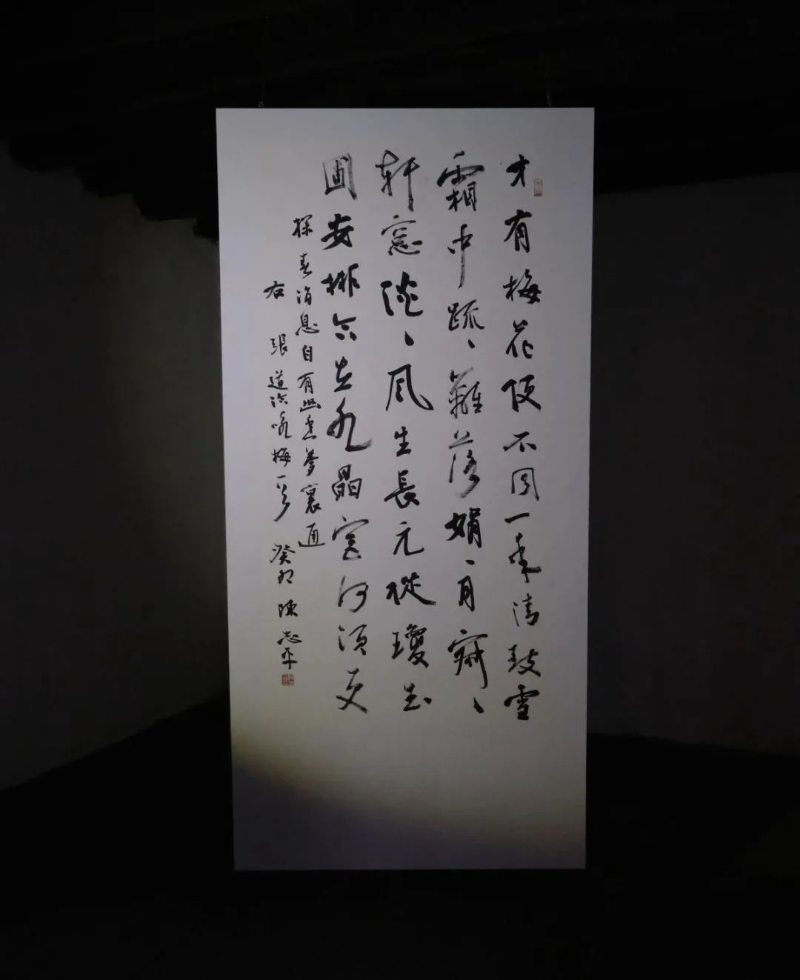 才有梅花便不同一年清致雪
霜中疏、籬落娟、月寂、
軒窓淡、風生長元從瓊玉
圃安排合在水晶宮何須更
探春消息自有幽香夢裏通
右張道洽咏梅一首 癸卯 陳志平